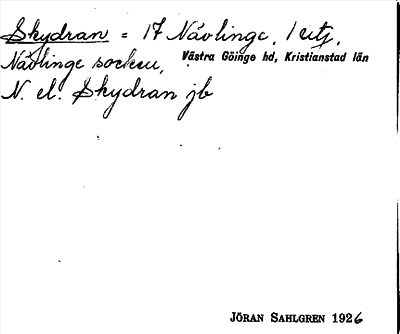 Skydran = 17 Nävlinge, 1 utj.
Nävlinge socken, Västra Göinge hd, Kristianstad län
N. el. Skydran jb
JÖRAN SAHLGREN 1926